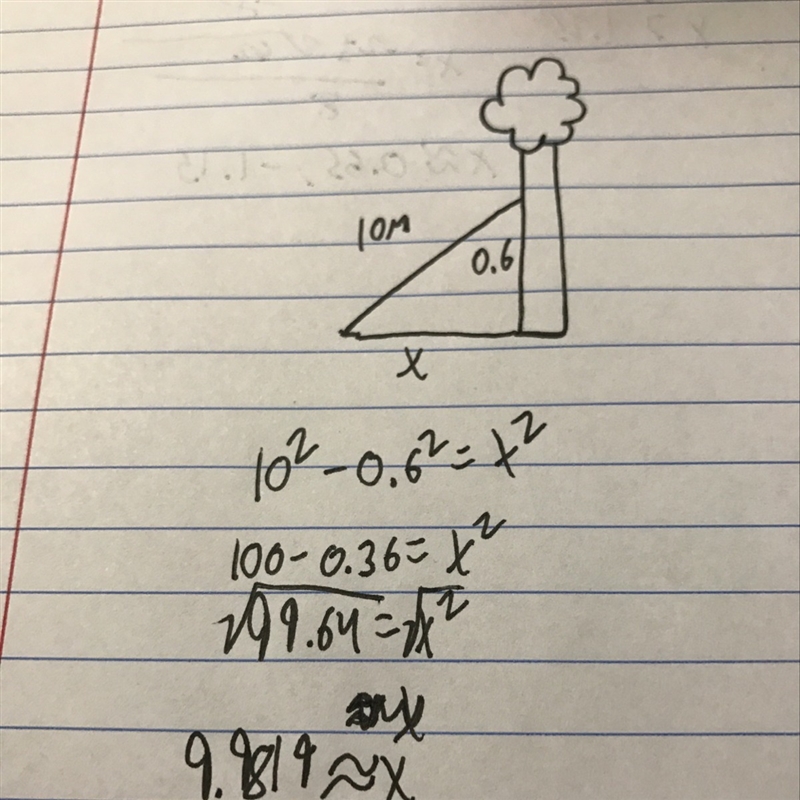 10M
0.6
x
10² - 0.6² = x²
100 - 0.36 = x²
√99.64 = √x²
x
9.9819 ≈ x